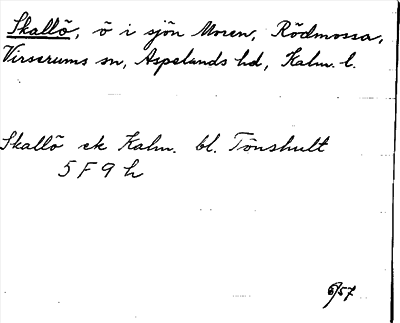 Skallö, ö i sjön Moren, Rödmossa,
Virserums sn, Aspelands hd, Kalm. l.
Skallö ek Kalm. bl. Tönshult
5 F 9 h
6/57